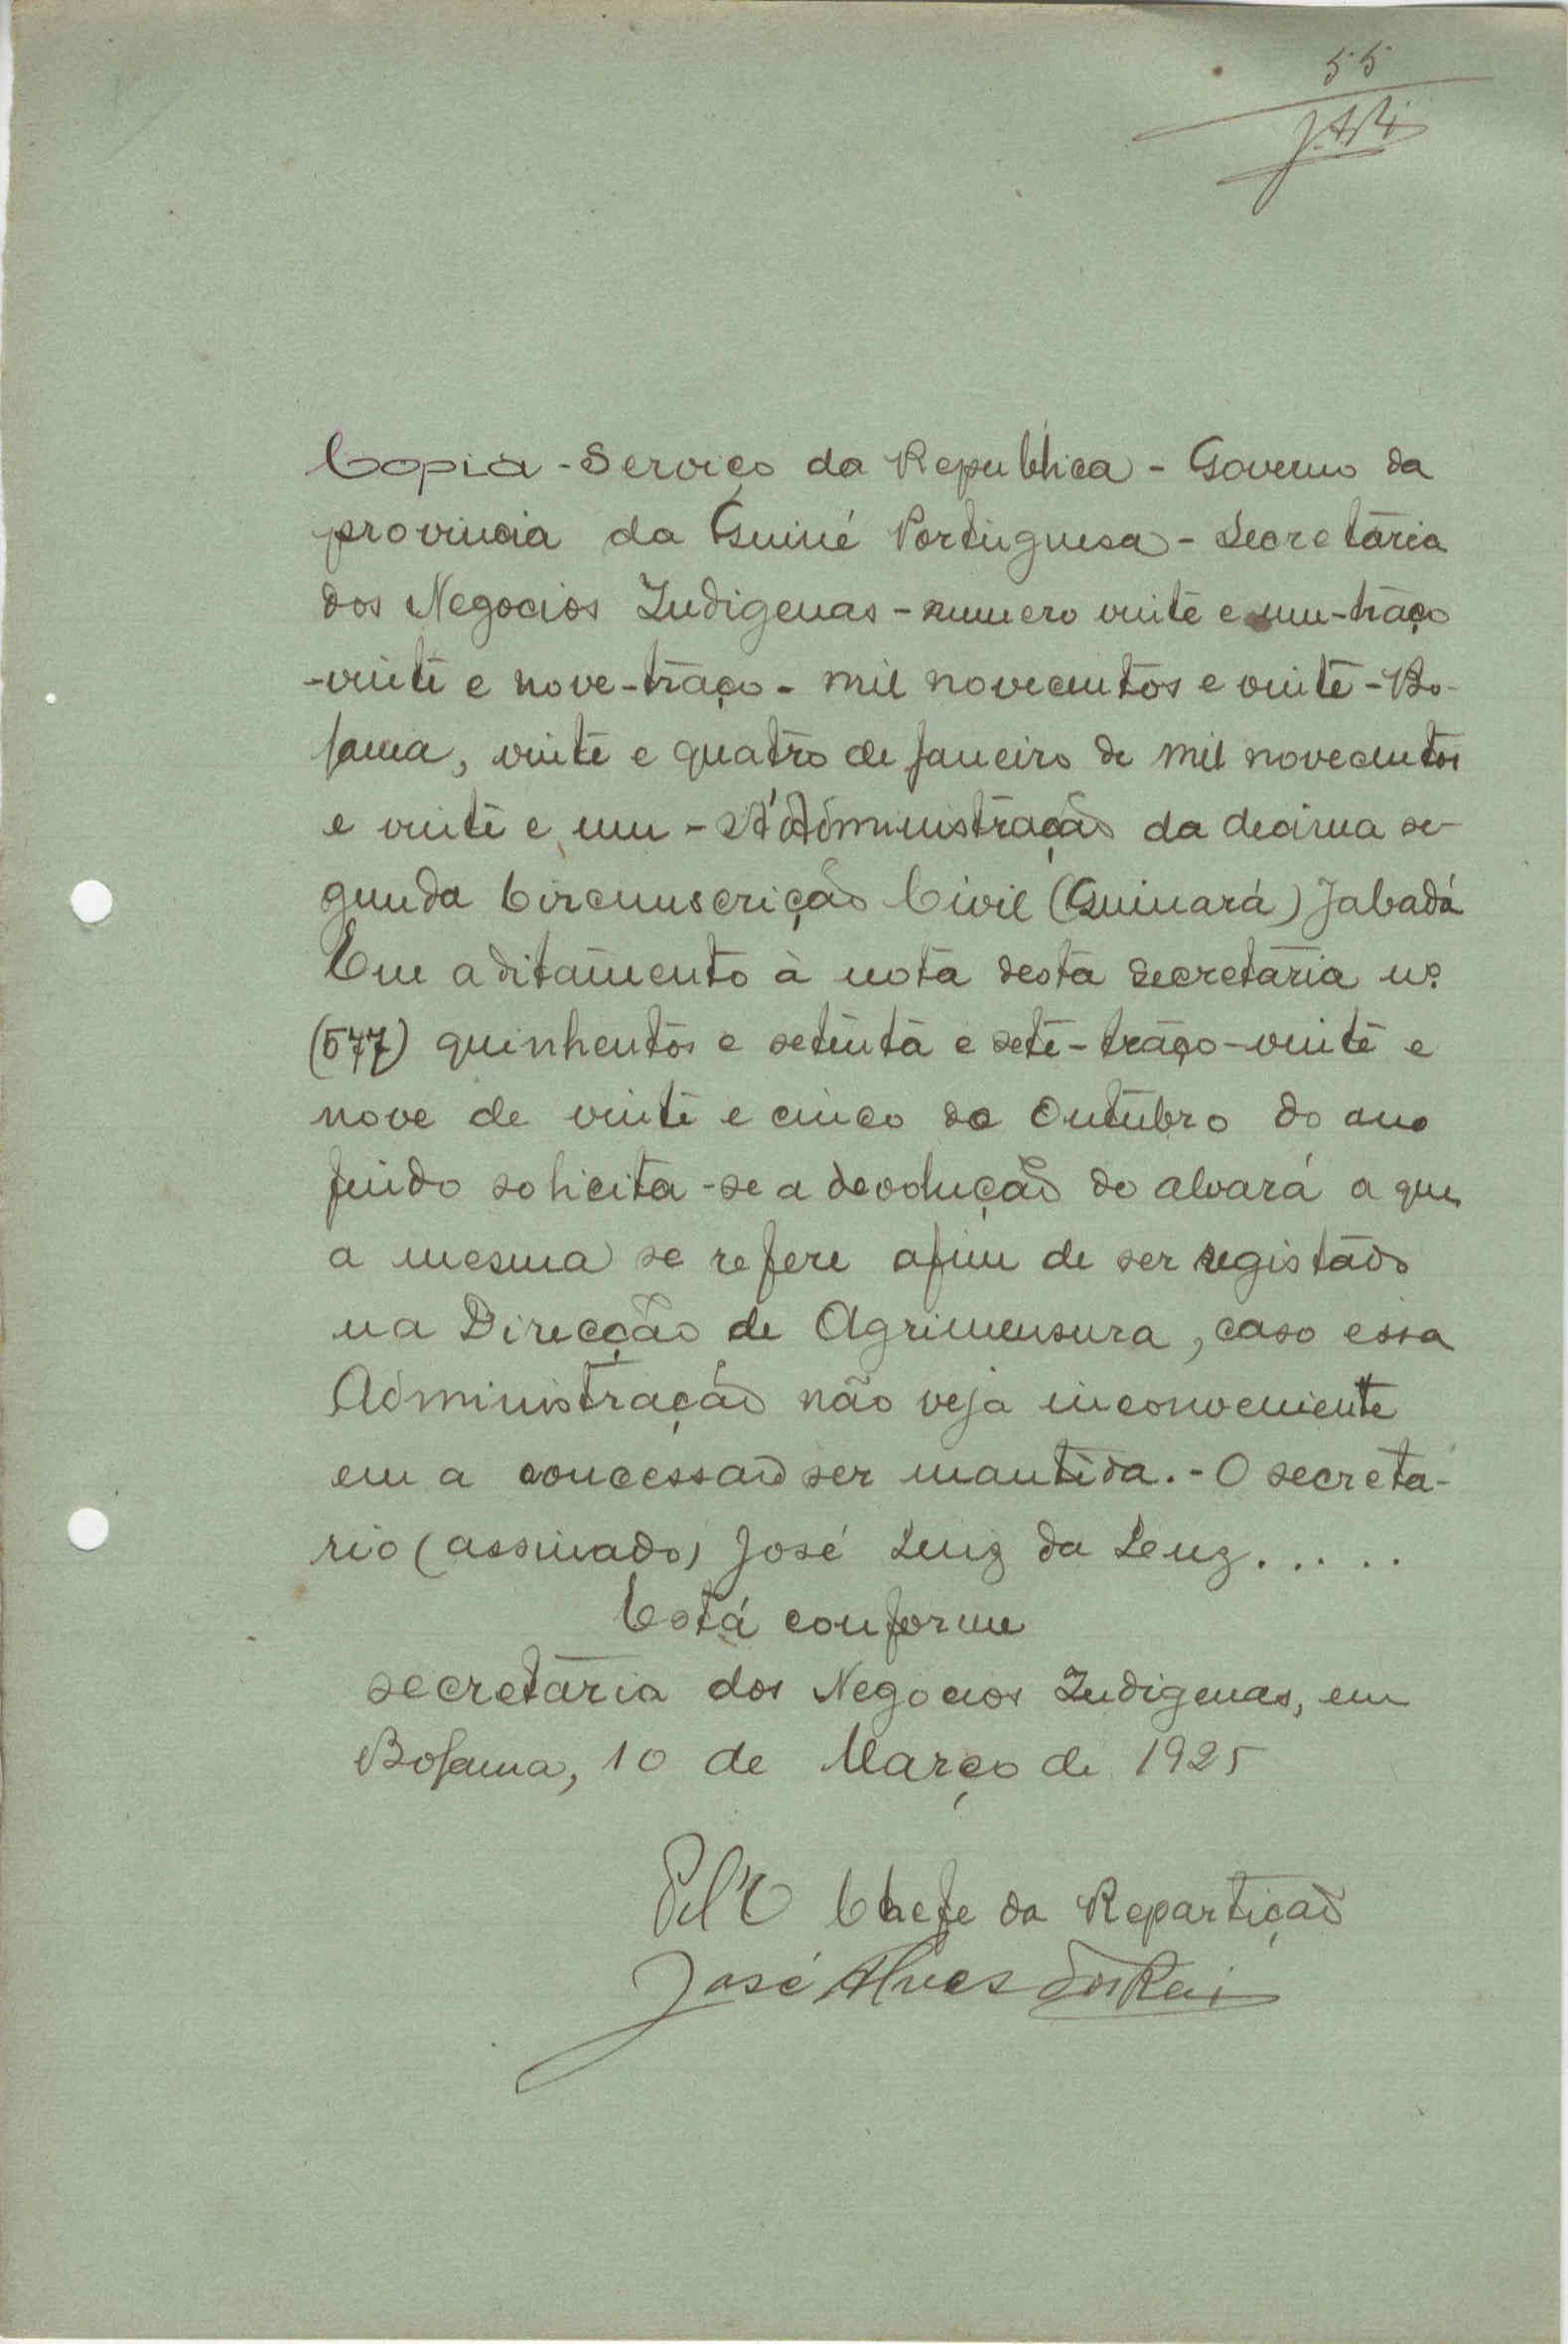 55
Copia - Serviço da Republica - Governo da
provincia da Guiné Portuguesa - Secretaria
dos Negocios Indigenas - numero vinte e um - traço
- vinte e nove - traço - mil novecentos e vinte - Bo-
lama, vinte e quatro de Janeiro de mil novecentos
e vinte e um - Á Administração da decima se-
gunda Circunscrição Civil (Quinará) Jabadá
Em aditamento à nota desta secretaria nº
(577) quinhentos e setenta e sete - traço - vinte e
nove de vinte e cinco de Outubro do ano
findo solicita-se a devolução do alvará a que
a mesma se refere afim de ser registado
na Direcção de Agrimensura, caso essa
Administração não veja inconveniente
em a concessão ser mantida. - O secretá-
rio (assinado) José Luiz da Luz . . . . .
Está conforme
Secretaria dos Negocios Indigenas, em
Bolama, 10 de Março de 1925
Pel'O Chefe da Repartição
José Alves dos Reis